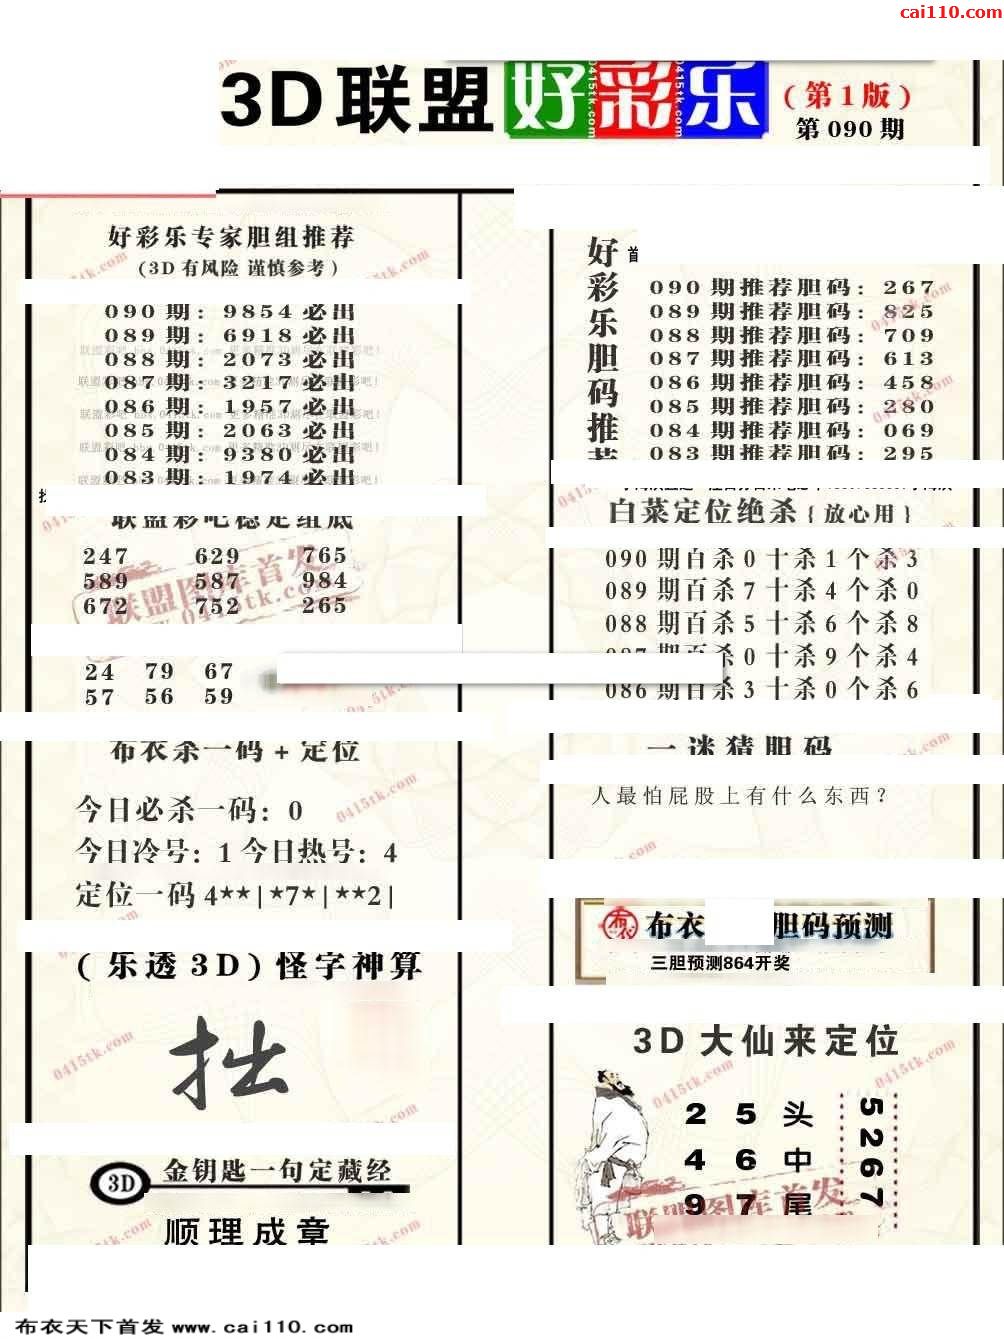 cai110.com
3D联盟好彩乐
(第1版)
第090期
好彩乐专家胆组推荐
(3D有风险 谨慎参考)
090期: 9854必出
089期: 6918必出
088期: 2073必出
087期: 3217必出
086期: 1957必出
085期: 2063必出
084期: 9380必出
083期: 1974必出
联盟彩吧稳定组底
247 629 765
589 587 984
672 752 265
24 79 67
57 56 59
布衣杀一码+定位
今日必杀一码: 0
今日冷号: 1 今日热号: 4
定位一码 4**|*7*|**2|
(乐透3D)怪字神算
拙
3D 金钥匙一句定藏经
顺理成章
好彩乐胆码推荐
首
090期推荐胆码: 267
089期推荐胆码: 825
088期推荐胆码: 709
087期推荐胆码: 613
086期推荐胆码: 458
085期推荐胆码: 280
084期推荐胆码: 069
083期推荐胆码: 295
白菜定位绝杀{放心用}
090期百杀0十杀1个杀3
089期百杀7十杀4个杀0
088期百杀5十杀6个杀8
087期百杀0十杀9个杀4
086期百杀3十杀0个杀6
一迷猜胆码
人最怕屁股上有什么东西?
布衣 胆码预测
三胆预测864开奖
3D大仙来定位
2 5 头
4 6 中
9 7 尾
5267
联盟图库首发
0415tk.com
布衣天下首发 www.cai110.com